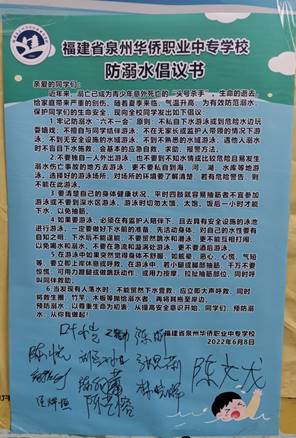 福建省泉州华侨职业中专学校
防溺水倡议书
亲爱的同学们：
近年来，溺亡已成为青少年意外死亡的“头号杀手”，生命的逝去
给家庭带来严重的创伤。随着夏季来临，气温升高，为有效防范溺水，
保护同学们的生命安全，现向全校同学发出如下倡议：
1. 牢记防溺水“六不一会”原则：不私自下水游泳或到危险水边玩
耍嬉戏、不擅自与同学结伴游泳、不在无家长或监护人带领的情况下游
泳、不到无安全设施的水域游泳、不到不熟悉的水域游泳、遇他人溺水
时不盲目下水救助、会基本的应急自救、求助、报警方法。
2. 不要独自一人外出游泳，也不要到不知水情或比较危险且易发生
溺水伤亡事故的地方去游泳，更不要私自到海、河、湖、水库等地游
泳。选择好的游泳场所，对场所的环境要了解清楚，若有危险警告，则
不能在此游泳。
3. 要清楚自己的身体健康状况，平时四肢就容易抽筋者不宜参加
游泳或不要到深水区游泳。游泳时切勿太饿、太饱，饭后一小时才能下
水，以免抽筋。
4. 如果要游泳，必须在有监护人陪伴下，且去具有安全设施的泳池
进行游泳，一定要做好下水前的准备，先活动身体
自知之明，下水后不能逞能，不要贸然跳水和潜泳，更不能互相打闹，
以免喝水和溺水。不要在急流和漩涡处游泳，更不要酒后游泳。
5. 在游泳中如果突然觉得身体不舒服，如眩晕、恶心、心慌、气短
等，要立即上岸休息或呼救。在游泳中，若小腿或脚部抽筋，千万不要
惊慌，可用力蹬腿或做跳跃动作，或用力按摩、拉扯抽筋部位，同时呼
叫同伴救助。
6. 当发现有人落水时，不能贸然下水营救，应立即大声呼救，同时
将救生圈、竹竿、木板等抛给溺水者，再将其拖至岸边。
预防溺水，以尊重生命为初衷，从提高安全意识开始。同学们，预防溺
水，从你我做起！
福建省泉州华侨职业中专学校
2022年6月8日
陈悦
陈文龙